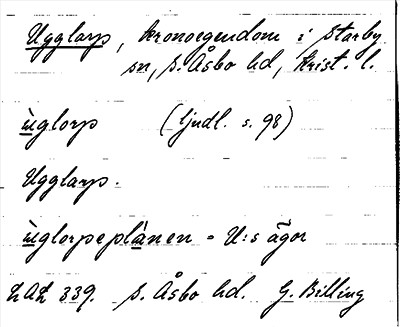 Ugglarp, kronoegendom i Starby
sn, S. Åsbo hd, Krist. l.
ùglorp (ljudl. s. 98)
Ugglarp.
ùglorpeplànen = U:s ägor
LAL 339. S. Åsbo hd. G. Billing